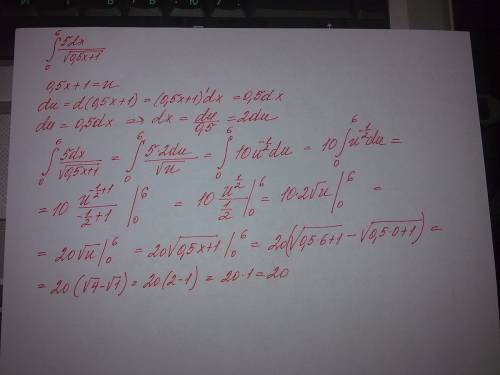 ∫₀⁶ 5dx/√(0,5x+1)
0,5x+1=u
du = d(0,5x+1) = (0,5x+1)'dx = 0,5dx
du = 0,5dx ⇒ dx = du/0,5 = 2du
∫₀⁶ 5dx/√(0,5x+1) = ∫₀⁶ 5·2du/√u = ∫₀⁶ 10u^(-1/2)du = 10∫₀⁶ u^(-1/2)du =
= 10 u^(-1/2+1)/(-1/2+1) |₀⁶ = 10 u^(1/2)/(1/2) |₀⁶ = 10·2√u |₀⁶ =
= 20√u |₀⁶ = 20√(0,5x+1) |₀⁶ = 20(√(0,5·6+1) - √(0,5·0+1)) =
= 20(√4-√1) = 20(2-1) = 20·1 = 20